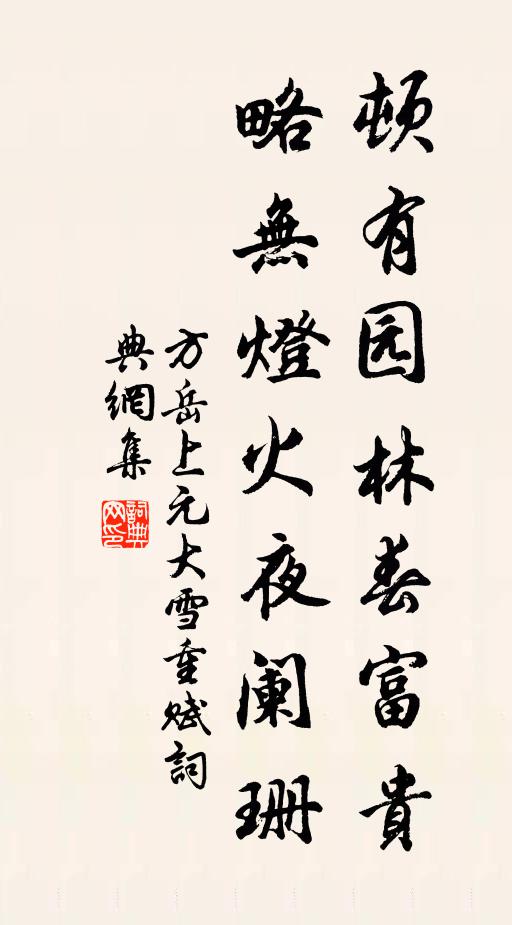 顿有园林春富貴
略無燈火夜阑珊
方岳上元大雪重赋詞
典網集
詞典
网印